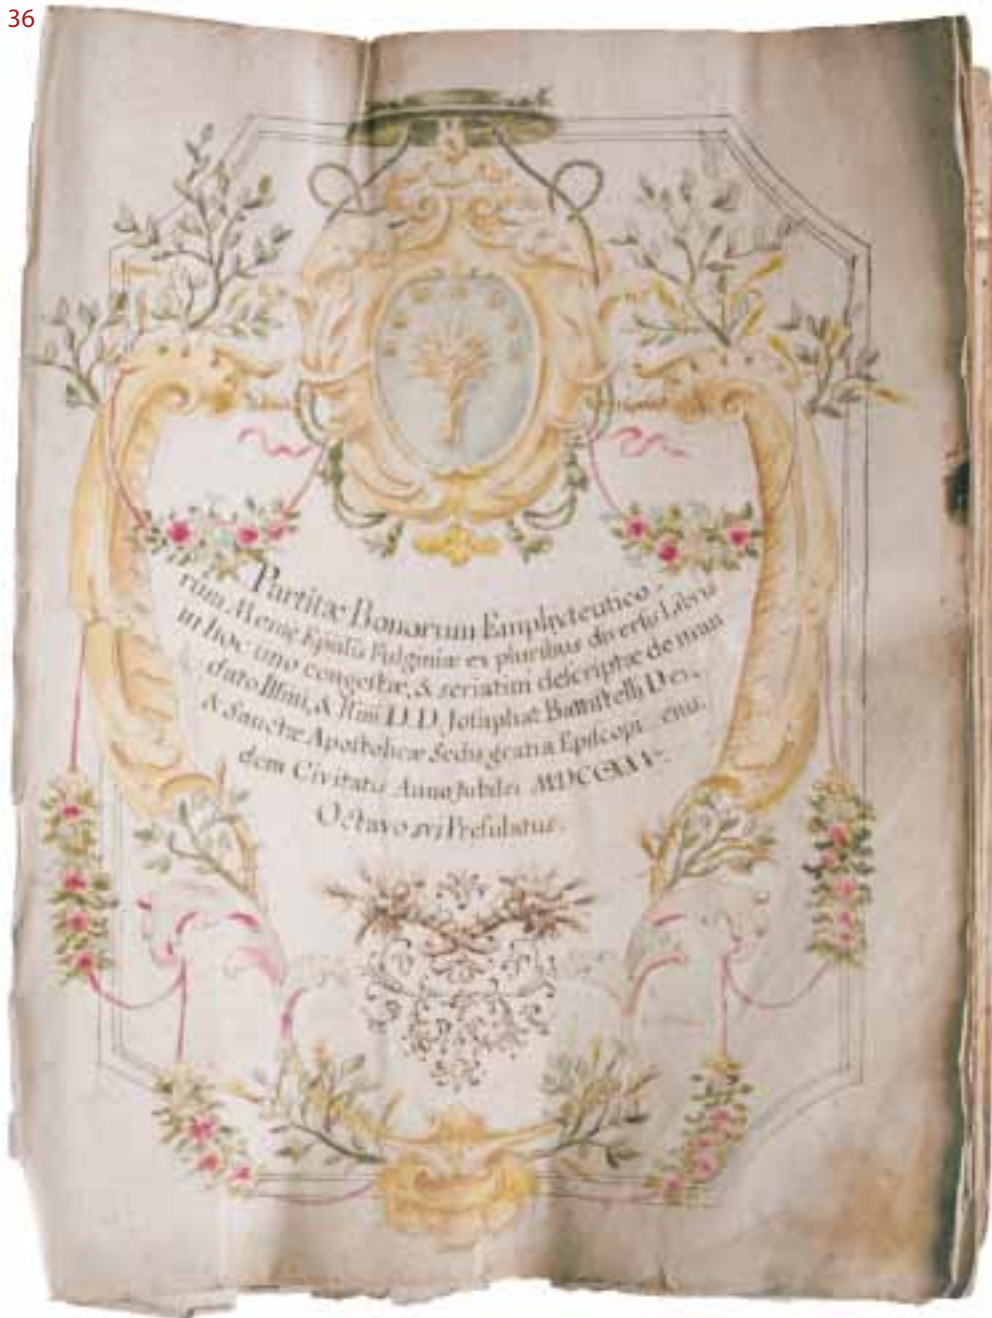 36
Partitæ Bonorum Emphyteutico,
rum Mensæ Epalis Fulginiæ ex pluribus diversis Libris
in hoc uno congestæ, & seriatim descriptæ de man
dato Illmi, & Rmi D. D. Josaphat Battistelli Dei,
& Sanctæ Apostolicæ Sedis gratia Episcopi
dem Civitatis Anno Jubilei
Octavo sui Presulatus.